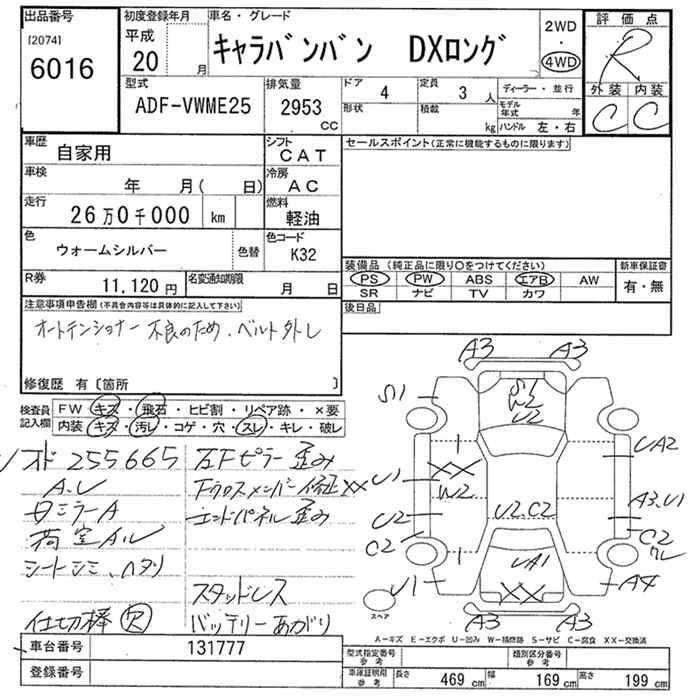 出品番号
[2074]
6016
初度登録年月
平成
20 月
車名・グレード
キャラバンバン DXロング
2WD
・
4WD
評価点
R
外装 内装
C C
型式
ADF-VWME25
排気量
2953
CC
ドア 4
形状
定員 3 人
積載 kg
ディーラー・並行
モデル年式 年
ハンドル 左・右
車歴
自家用
車検
年 月( 日)
走行
26万0千000 km
色
ウォームシルバー
色替
シフト
CAT
冷房
AC
燃料
軽油
色コード
K32
R券
11,120円
名変通知期限
月 日
セールスポイント(正常に機能するものに限ります)
装備品 (純正品に限り○をつけてください)
PS PW ABS エアB AW
SR ナビ TV カワ
新車保証書
有・無
後日品
注意事項申告欄(不具合内容等は具体的に記入して下さい)
オートテンショナー 不良のため、ベルト外し
修復歴 有〔箇所 〕
検査員記入欄
FW キズ・飛石・ヒビ割・リペア跡・×要
内装 キズ・汚レ・コゲ・穴・スレ・キレ・破レ
255665
左Fピラー歪み
A.V
Fクロスメンバー修正XX
ミラーA
エンドパネル歪み
荷室
シートシミ、ヘタリ
スタッドレス
仕切棒 欠
バッテリーあがり
A3 A3
S1
S1
W2
U2
UA2
XX
W2
U1
U2
C2
U2.C2
A3.U1
C2
ワレ
U1
UA1
XX
A4
A3 A3
スペア
A-キズ E-エクボ U-凹み W-補修跡 S-サビ C-腐食 XX-交換済
車台番号
131777
登録番号
型式指定番号
参考
類別区分番号
参考
車庫証明用
参考
長さ 469 cm
幅 169 cm
高さ 199 cm